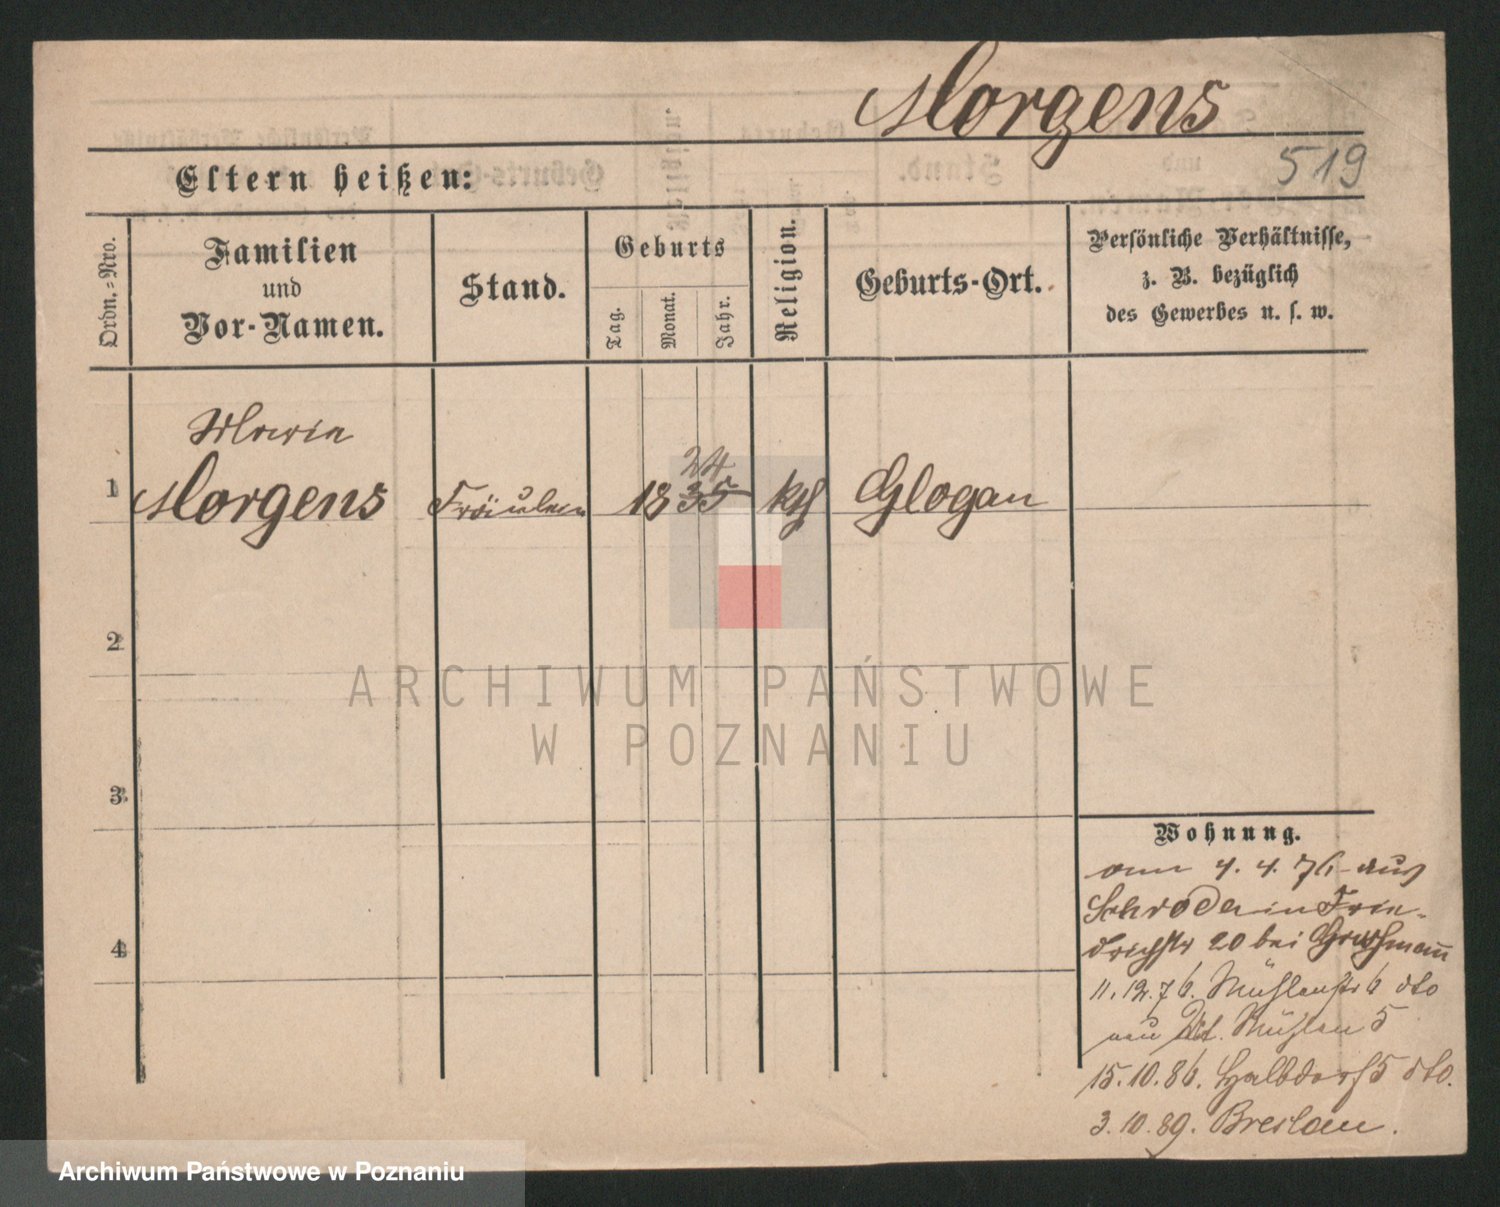 Morgens
519
Eltern heißen:
Ordn.-Nro.
Familien
und
Vor-Namen.
Stand.
Geburts
Tag.
Monat.
Jahr.
Religion.
Geburts-Ort.
Persönliche Verhältnisse,
z. B. bezüglich
des Gewerbes u. s. w.
Marie
24
1 Morgens Fräulein 1835 kth Glogau
2
3
4
ARCHIWUM PAŃSTWOWE
W POZNANIU
Wohnung.
4. 4. 76 aus
Schroda in Frie-
drichstr 20 bei
11.12.76. Mühlenstr 6 dto
Mühlen 5
15.10.86. Halbdorf 5 dto.
3.10.89. Breslau.
Archiwum Państwowe w Poznaniu